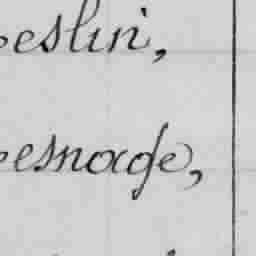 eslin,
esnage,